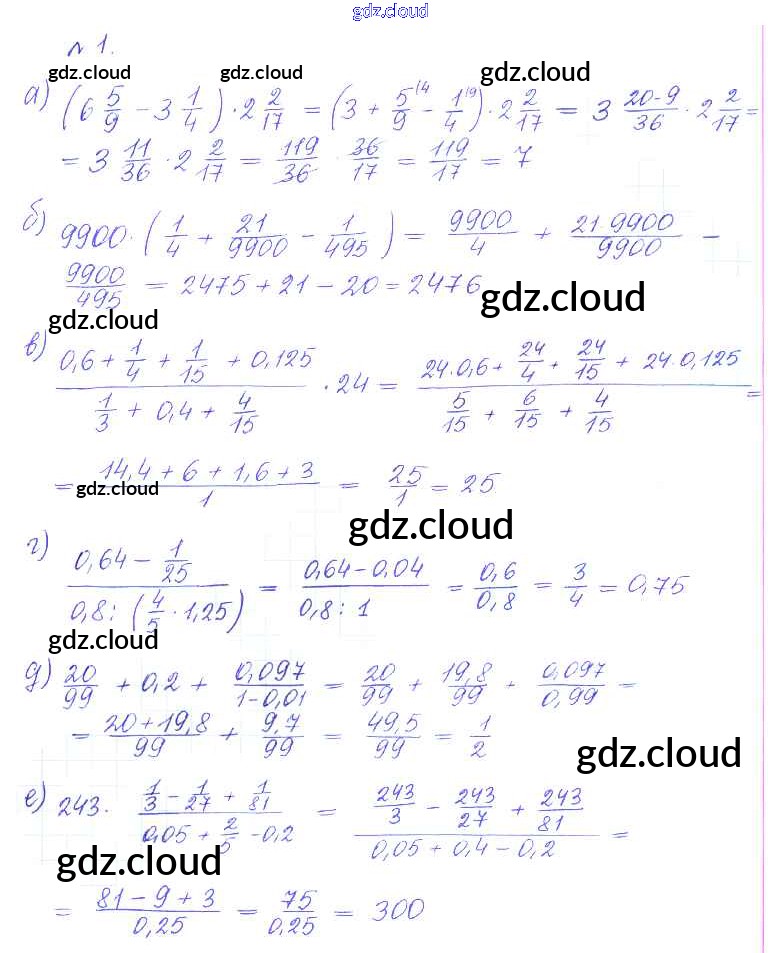 gdz.cloud
№ 1.
gdz.cloud gdz.cloud gdz.cloud
а) (6 5/9 - 3 1/4) · 2 2/17 = (3 + 5/9 ⁽⁴ - 1/4 ⁽⁹) · 2 2/17 = 3 (20-9)/36 · 2 2/17 =
= 3 11/36 · 2 2/17 = 119/36 · 36/17 = 119/17 = 7
б) 9900 · (1/4 + 21/9900 - 1/495) = 9900/4 + (21·9900)/9900 -
9900/495 = 2475 + 21 - 20 = 2476
gdz.cloud
gdz.cloud
в) (0,6 + 1/4 + 1/15 + 0,125)/(1/3 + 0,4 + 4/15) · 24 = (24·0,6 + 24/4 + 24/15 + 24·0,125)/(5/15 + 6/15 + 4/15) =
= (14,4 + 6 + 1,6 + 3)/1 = 25/1 = 25
gdz.cloud
gdz.cloud
г) (0,64 - 1/25)/(0,8 : (4/5 · 1,25)) = (0,64 - 0,04)/(0,8 : 1) = 0,6/0,8 = 3/4 = 0,75
gdz.cloud
д) 20/99 + 0,2 + 0,097/(1-0,01) = 20/99 + 19,8/99 + 0,097/0,99 =
= (20+19,8)/99 + 9,7/99 = 49,5/99 = 1/2
gdz.cloud
е) 243 · (1/3 - 1/27 + 1/81)/(0,05 + 2/5 - 0,2) = (243/3 - 243/27 + 243/81)/(0,05 + 0,4 - 0,2) =
gdz.cloud
= (81 - 9 + 3)/0,25 = 75/0,25 = 300